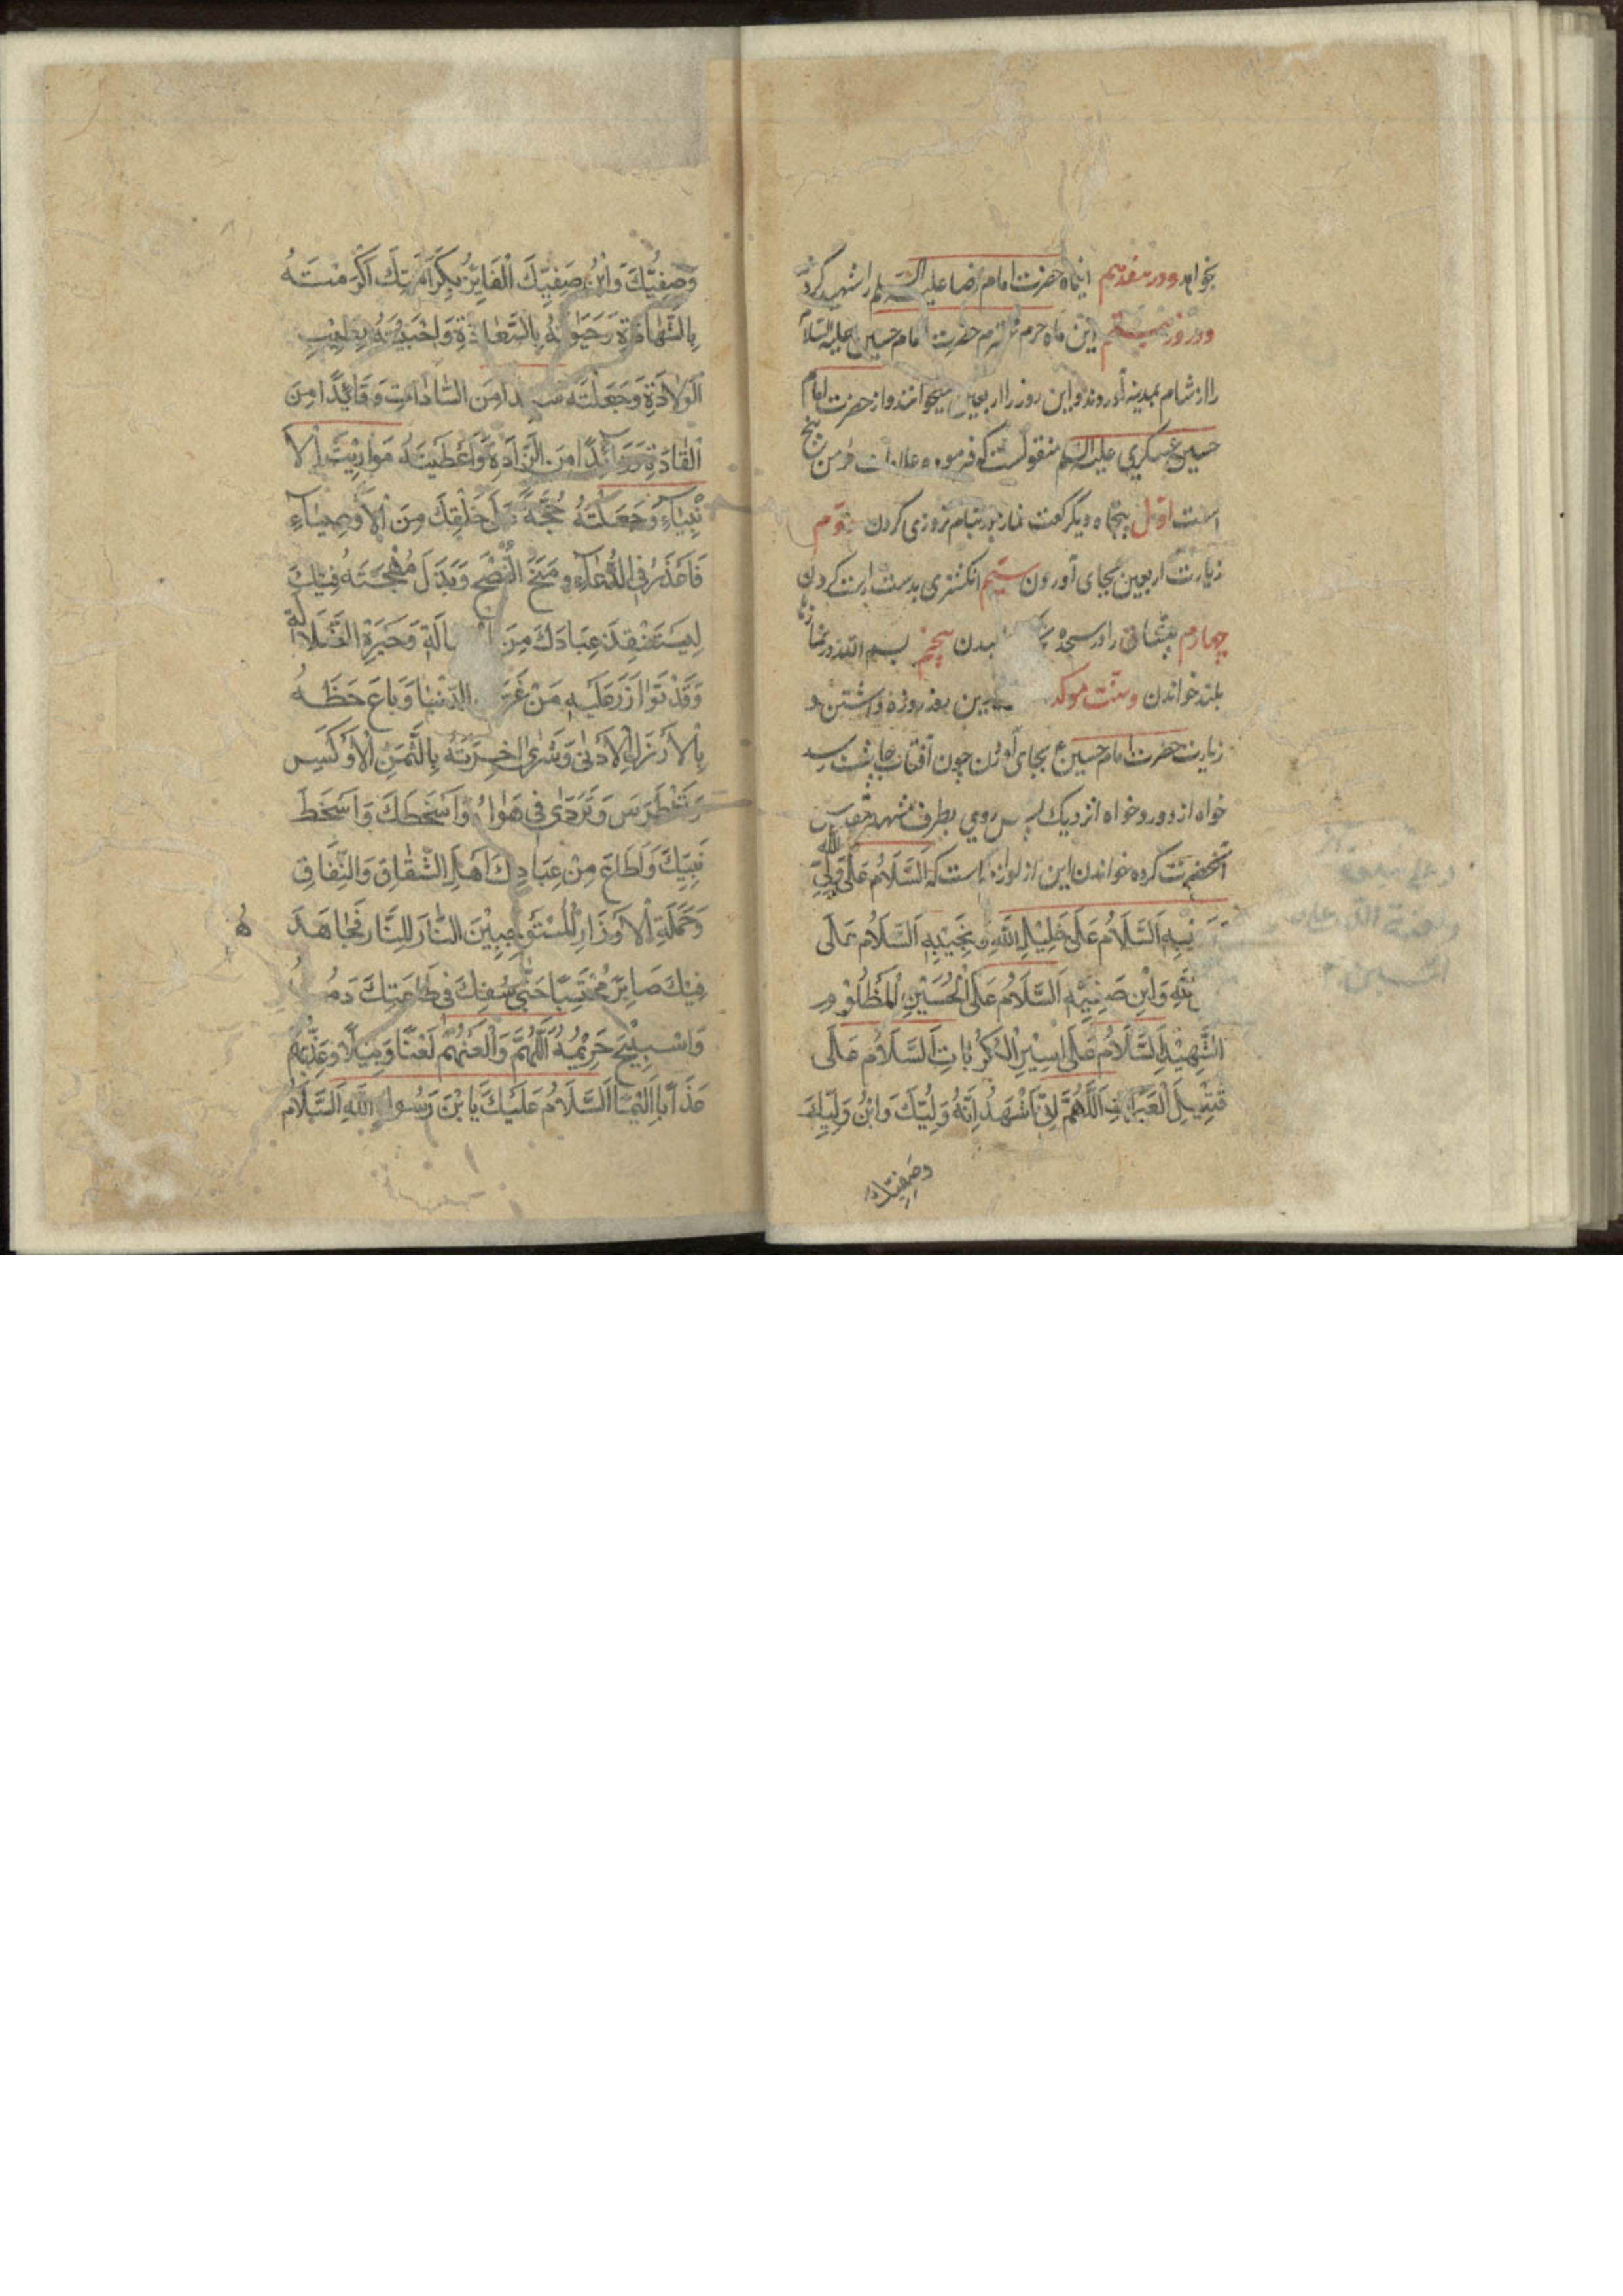 بخواند و در هفدهم اینماه حضرت امام رضا علیه السلم را شهید کردند
و در روز بیستم این ماه حرم محترم حضرت امام حسین علیه السلام
را از شام بمدینه آوردند و این روز را اربعین میخوانند و از حضرت امام
حسین عسکری علیه السلم منقولست که فرموده علامات مؤمن پنج
است اول پنجاه و یکرکعت نماز در شبانروزی کردن دوم
زیارت اربعین بجای آوردن سیم انکشتری بدست راست کردن
چهارم پیشانی را در سجده بدن پنجم بسم الله در نماز
بلند خواندن و سنت موکد بین روز روزه داشتن و
زیارت حضرت امام حسین ع بجای آوردن چون آفتاب چاشت رسد
خواه از دور و خواه از نزدیک پس روی بطرف مشهد مقدس
آنحضرت کرده خواندن این است که السلام علی ولی الله
السلام علی خلیل الله و نجیبه السلام علی
الله وابن صفیه السلام علی الحسین المظلوم
الشهید السلام علی اسیر الکربات السلام علی
قتیل العبرات اللهم انی اشهد انه ولیک وابن ولیک
وصفیک
وصفیک وابن صفیک الفایز بکرامتک اکرمته
بالشهادة وحبوته بالسعادة واجتبیته بطیب
الولادة وجعلته سیدا من السادات وقائدا من
القادة وذائدا من الزادة واعطیته مواریث الا
نبیاء وجعلته حجة علی خلقک من الاوصیاء
فاعذر فی الدعاء ومنح النصح وبذل مهجته فیک
لیستنقذ عبادک من الجهالة وحیرة الضلالة
وقد توازر علیه من غرته الدنیا وباع حظه
بالارذل الادنی وشری اخرته بالثمن الاوکس
وتغطرس وتردی فی هواه واسخطک واسخط
نبیک واطاع من عبادک اهل الشقاق والنفاق
وحملة الاوزار المستوجبین النار للنار فجاهد هم
فیک صابرا محتسبا حتی سفک فی طاعتک دمه
واستبیح حریمه اللهم والعنهم لعنا وبیلا وعذبهم
عذابا الیما السلام علیک یابن رسول الله السلام